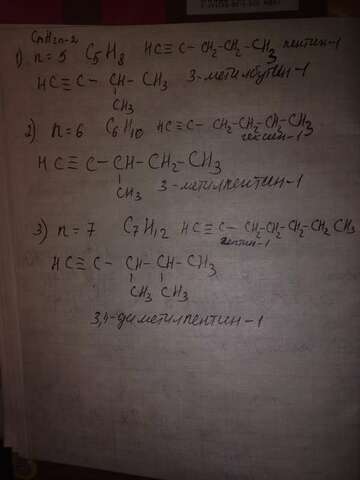 CnH2n-2
1) n=5 C5H8 HC≡C-CH2-CH2-CH3 пентин-1
HC≡C-CH-CH3 3-метилбутин-1
CH3
2) n=6 C6H10 HC≡C-CH2-CH2-CH2-CH3
гексин-1
HC≡C-CH-CH2-CH3
CH3 3-метилпентин-1
3) n=7 C7H12 HC≡C-CH2-CH2-CH2-CH2CH3
гептин-1
HC≡C-CH-CH-CH3
CH3 CH3
3,4-диметилпентин-1